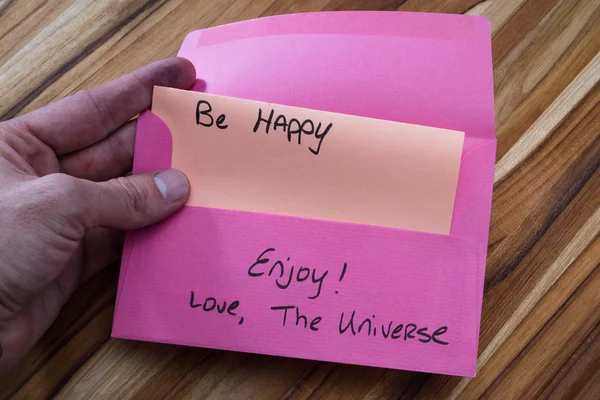 Be Happy
Enjoy!
Love, The Universe